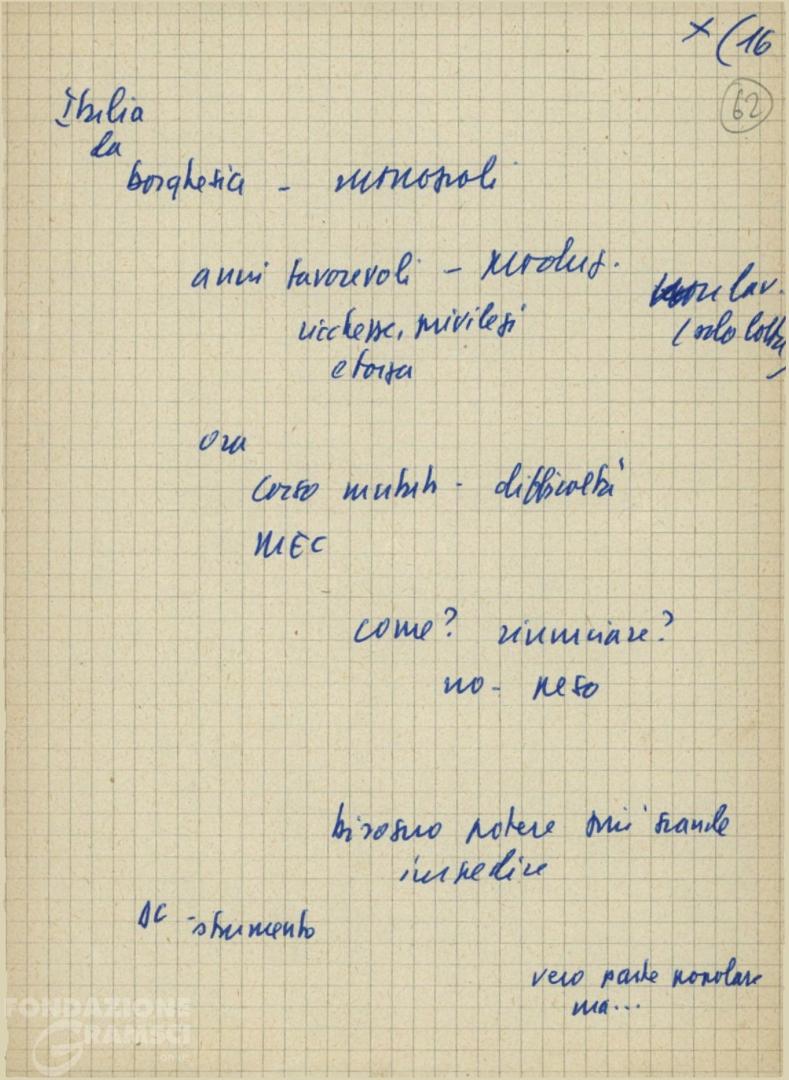 x (16
62
Italia
la
borghesia - monopoli
anni favorevoli - produz.
ricchezze, privilegi
e forza
non lav.
(solo lotta)
ora
corso mutato - difficoltà
MEC
come? rinunciare?
no - peso
bisogno potere più grande
impedire
DC - strumento
vero parte popolare
ma...
FONDAZIONE
GRAMSCI